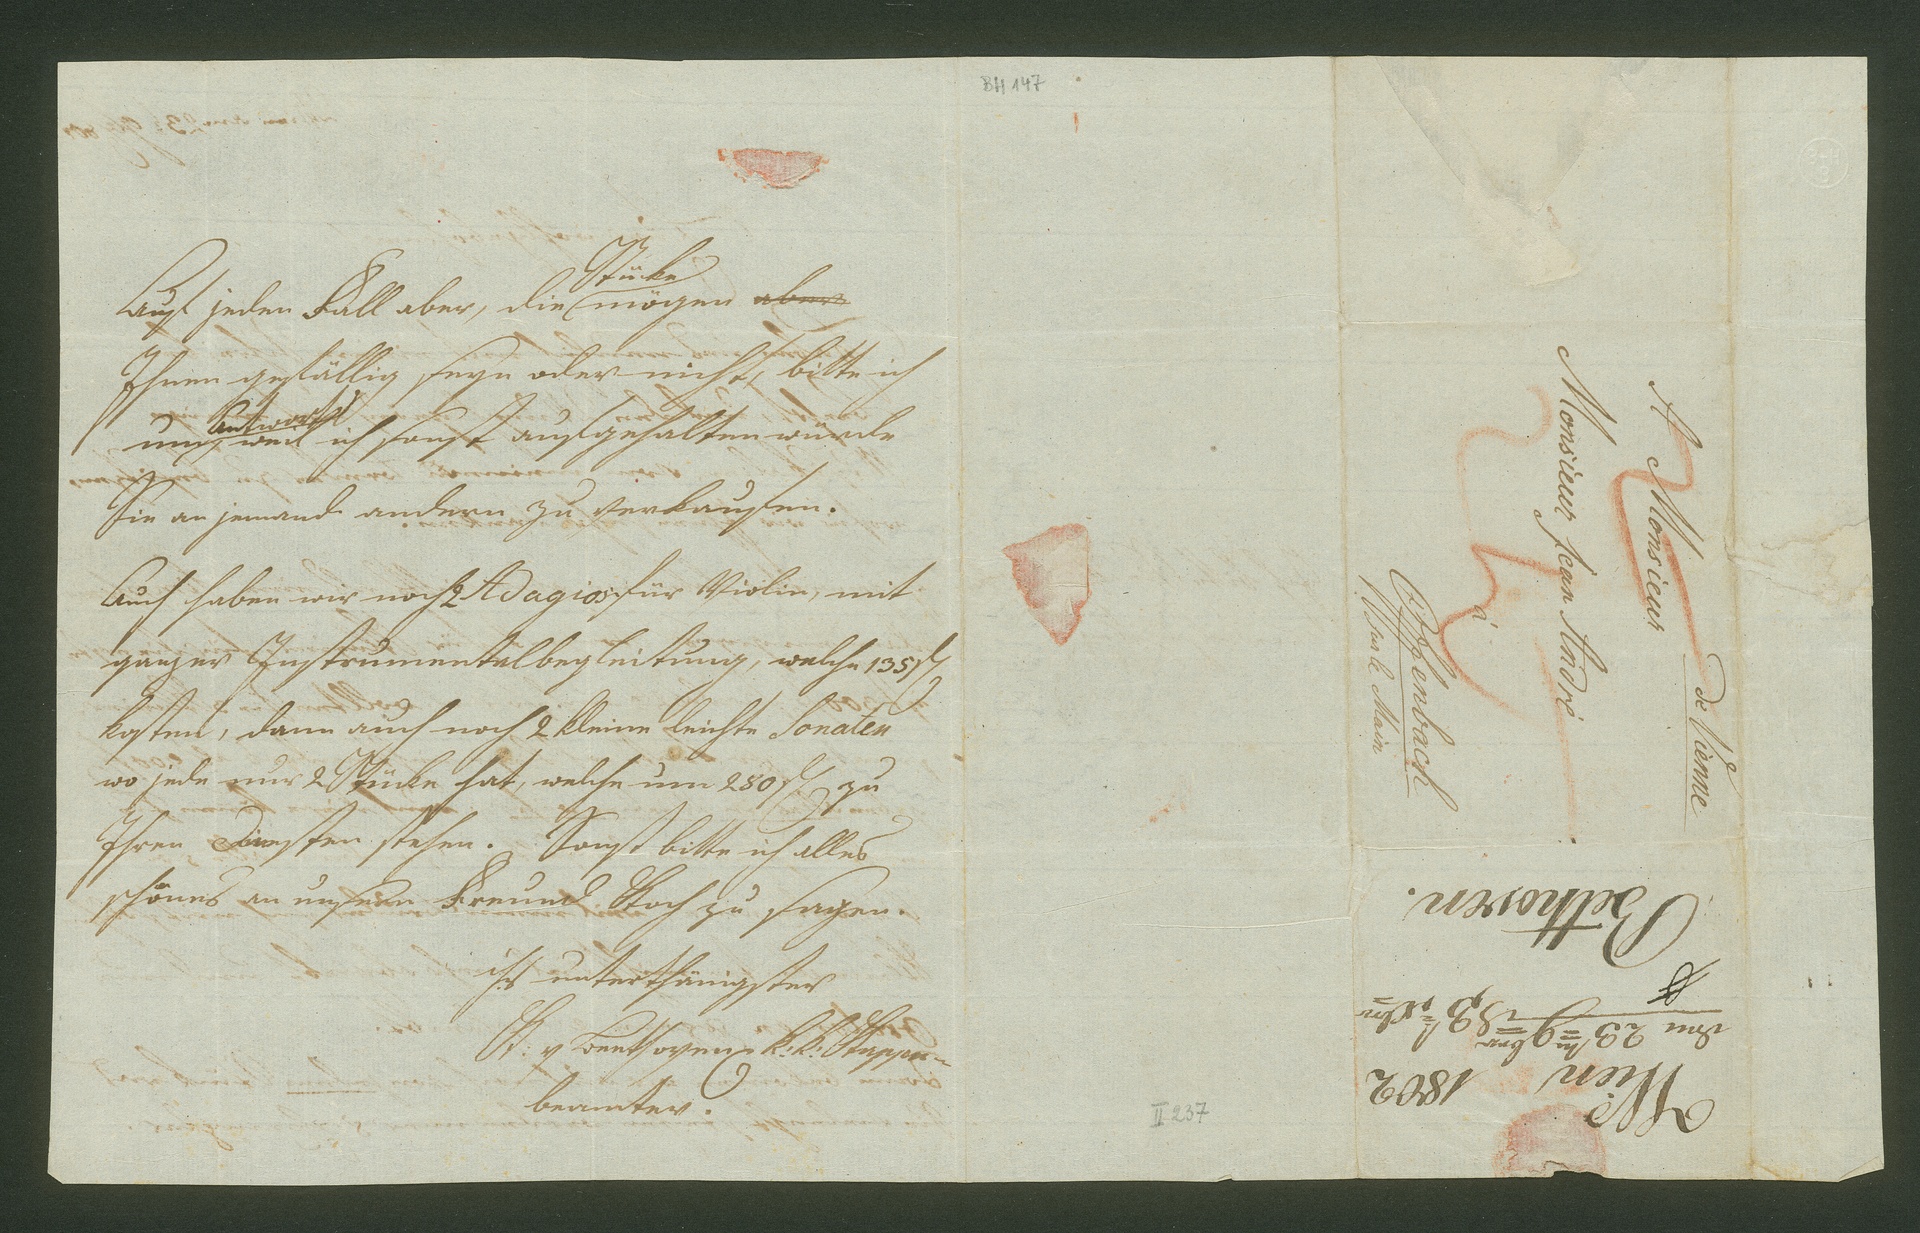 BH 147
Stücke
Auf jeden Fall aber, die mögen aber
Ihnen gefällig seyn oder nicht, bitte ich
Antwort
um, weil ich sonst aufgehalten würde
Sie an jemand andern zu verkaufen.
Auch haben wir noch 2 Adagios für Violin, mit
ganzer Instrumentalbegleitung, welche 135 fl
kosten, dann auch noch 2 kleine leichte Sonaten
wo jede nur 2 Stücke hat, welche um 280 fl zu
Ihren Diensten stehen. Sonst bitte ich alles
schönes an unsern Freund Koch zu sagen.
ihr unterthänigster
K: v Beethoven k: k: Kassen-
beamter.
II 237
de Vienne
A Monsieur
Monsieur Jean André
à
Offenbach
sur le Main
Wien 1802
den 23 9ber
Bethoven.